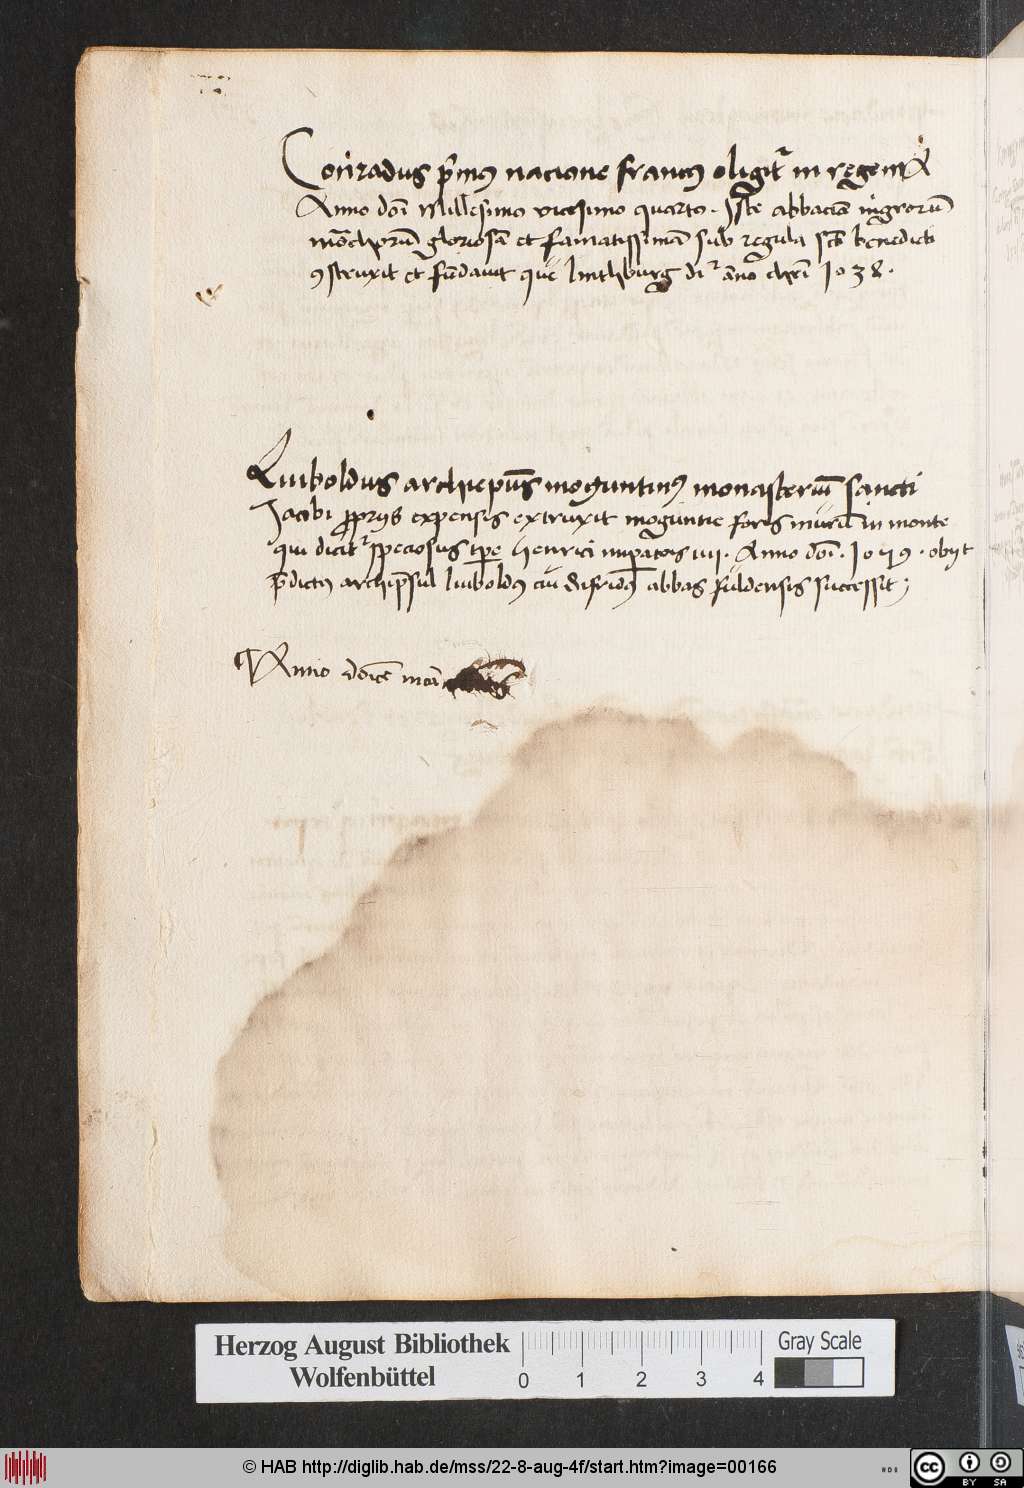 Conradus p̄mus nacione francus eligit᷑ in regem A
Anno dōi Millesimo vicesimo quarto. Iste abbaciā nigrorum̄
mōchorū gloriosā et famatissimā sub regula sc̄i benedicti
ꝯstruxit et fūdauit que linthburg di᷑ āno chr̄i 1038.
Luiboldus archiep̄us moguntinꝰ monasteriū sancti
Jacobi ꝓprijs expensis extruxit moguntie foris murū in monte
qui dicit᷑ speciosus tp̄e henrici imꝑatoris iiij. Anno dōi. 1059. obijt
p̄dictꝰ archip̄sul luiboldꝰ cui Sifridꝰ abbas fuldensis successit;
Anno dōice incar
Herzog August Bibliothek
Wolfenbüttel
0 1 2 3 4
Gray Scale
© HAB http://diglib.hab.de/mss/22-8-aug-4f/start.htm?image=00166
cc BY SA